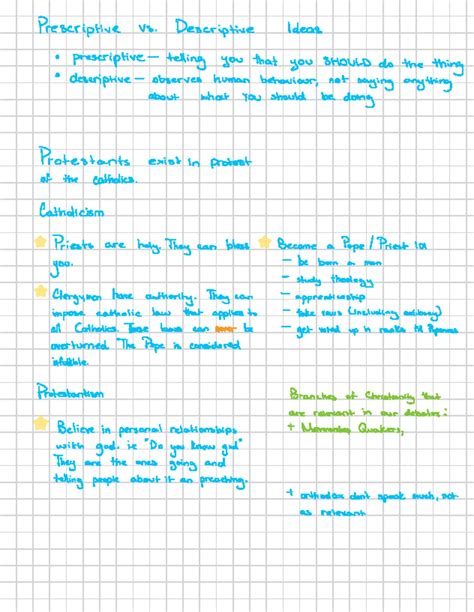 Prescriptive vs. Descriptive Ideas
• prescriptive — telling you that you SHOULD do the thing
• descriptive — observes human behaviour, not saying anything
about what you should be doing
Protestants exist in protest
of the catholics.
Catholicism
Priests are holy. They can bless
you.
Clergymen have authority. They can
impose catholic law that applies to
all Catholics. These laws can never be
overturned. The Pope is considered
infallible.
Become a Pope / Priest 101
— be born a man
— study theology
— apprenticeship
— take vows (including celibacy)
— get voted up in ranks til
Protestantism
Believe in personal relationships
with god. ie "Do you know god"
They are the ones going and
telling people about it an preaching.
Branches of Christianity that
are relevant in our debates:
+ Quakers,
+ orthodox dont speak much, not
as relevant